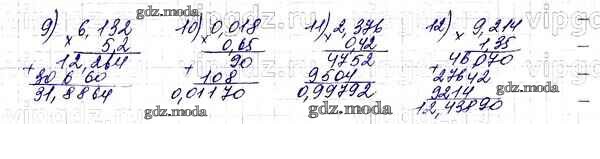 9) 6,132
× 5,2
12,264
+
30660
31,8864
10) 0,018
× 0,65
90
+
108
0,01170
11) 2,376
× 0,42
4752
+
9504
0,99792
12) 9,214
× 1,35
46070
+
27642
9214
12,43890
gdz.moda
gdz.moda
gdz.moda
gdz.moda
gdz.moda